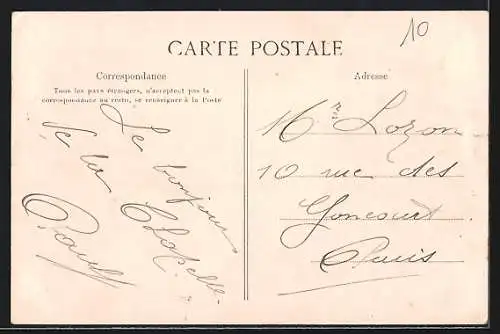 10
CARTE POSTALE
Correspondance
Tous les pays étrangers, n'acceptent pas la
correspondance au recto, se renseigner à la Poste
Le bonjour
de la Chapelle
Paul
Adresse
Mr Lozon
10 rue des
Goncourt
Paris